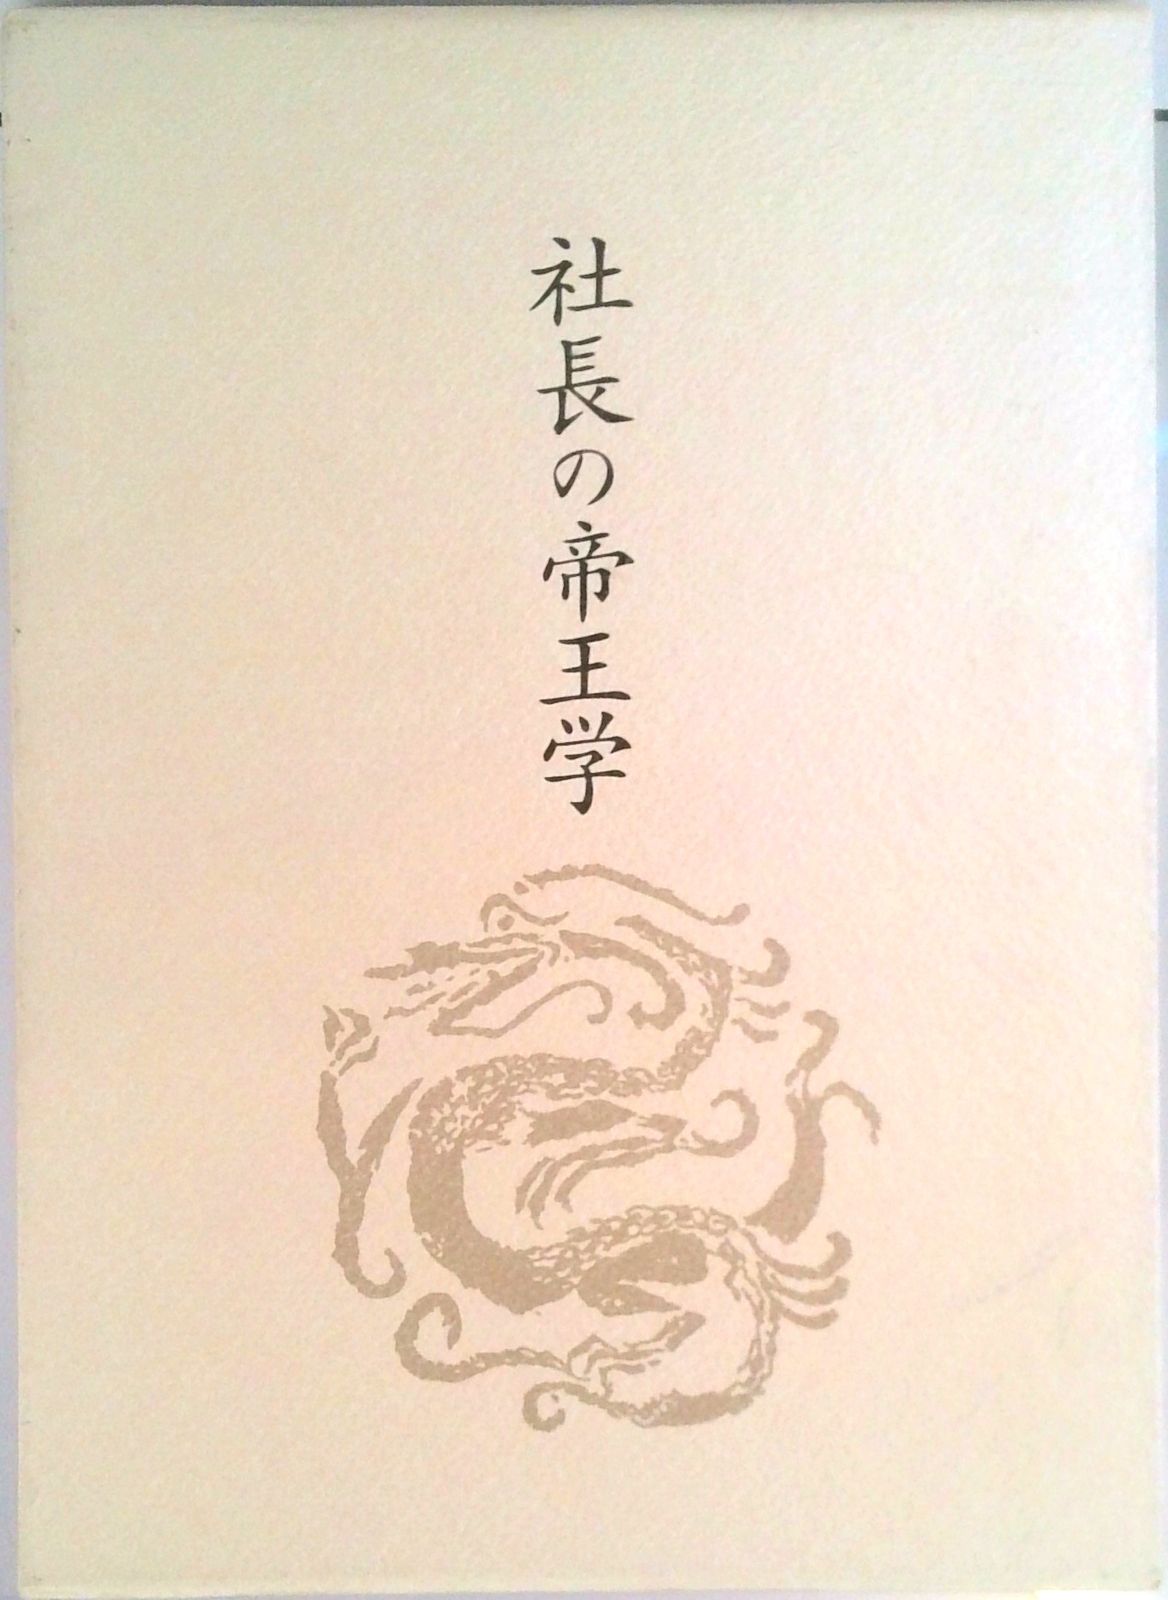 社長の帝王学